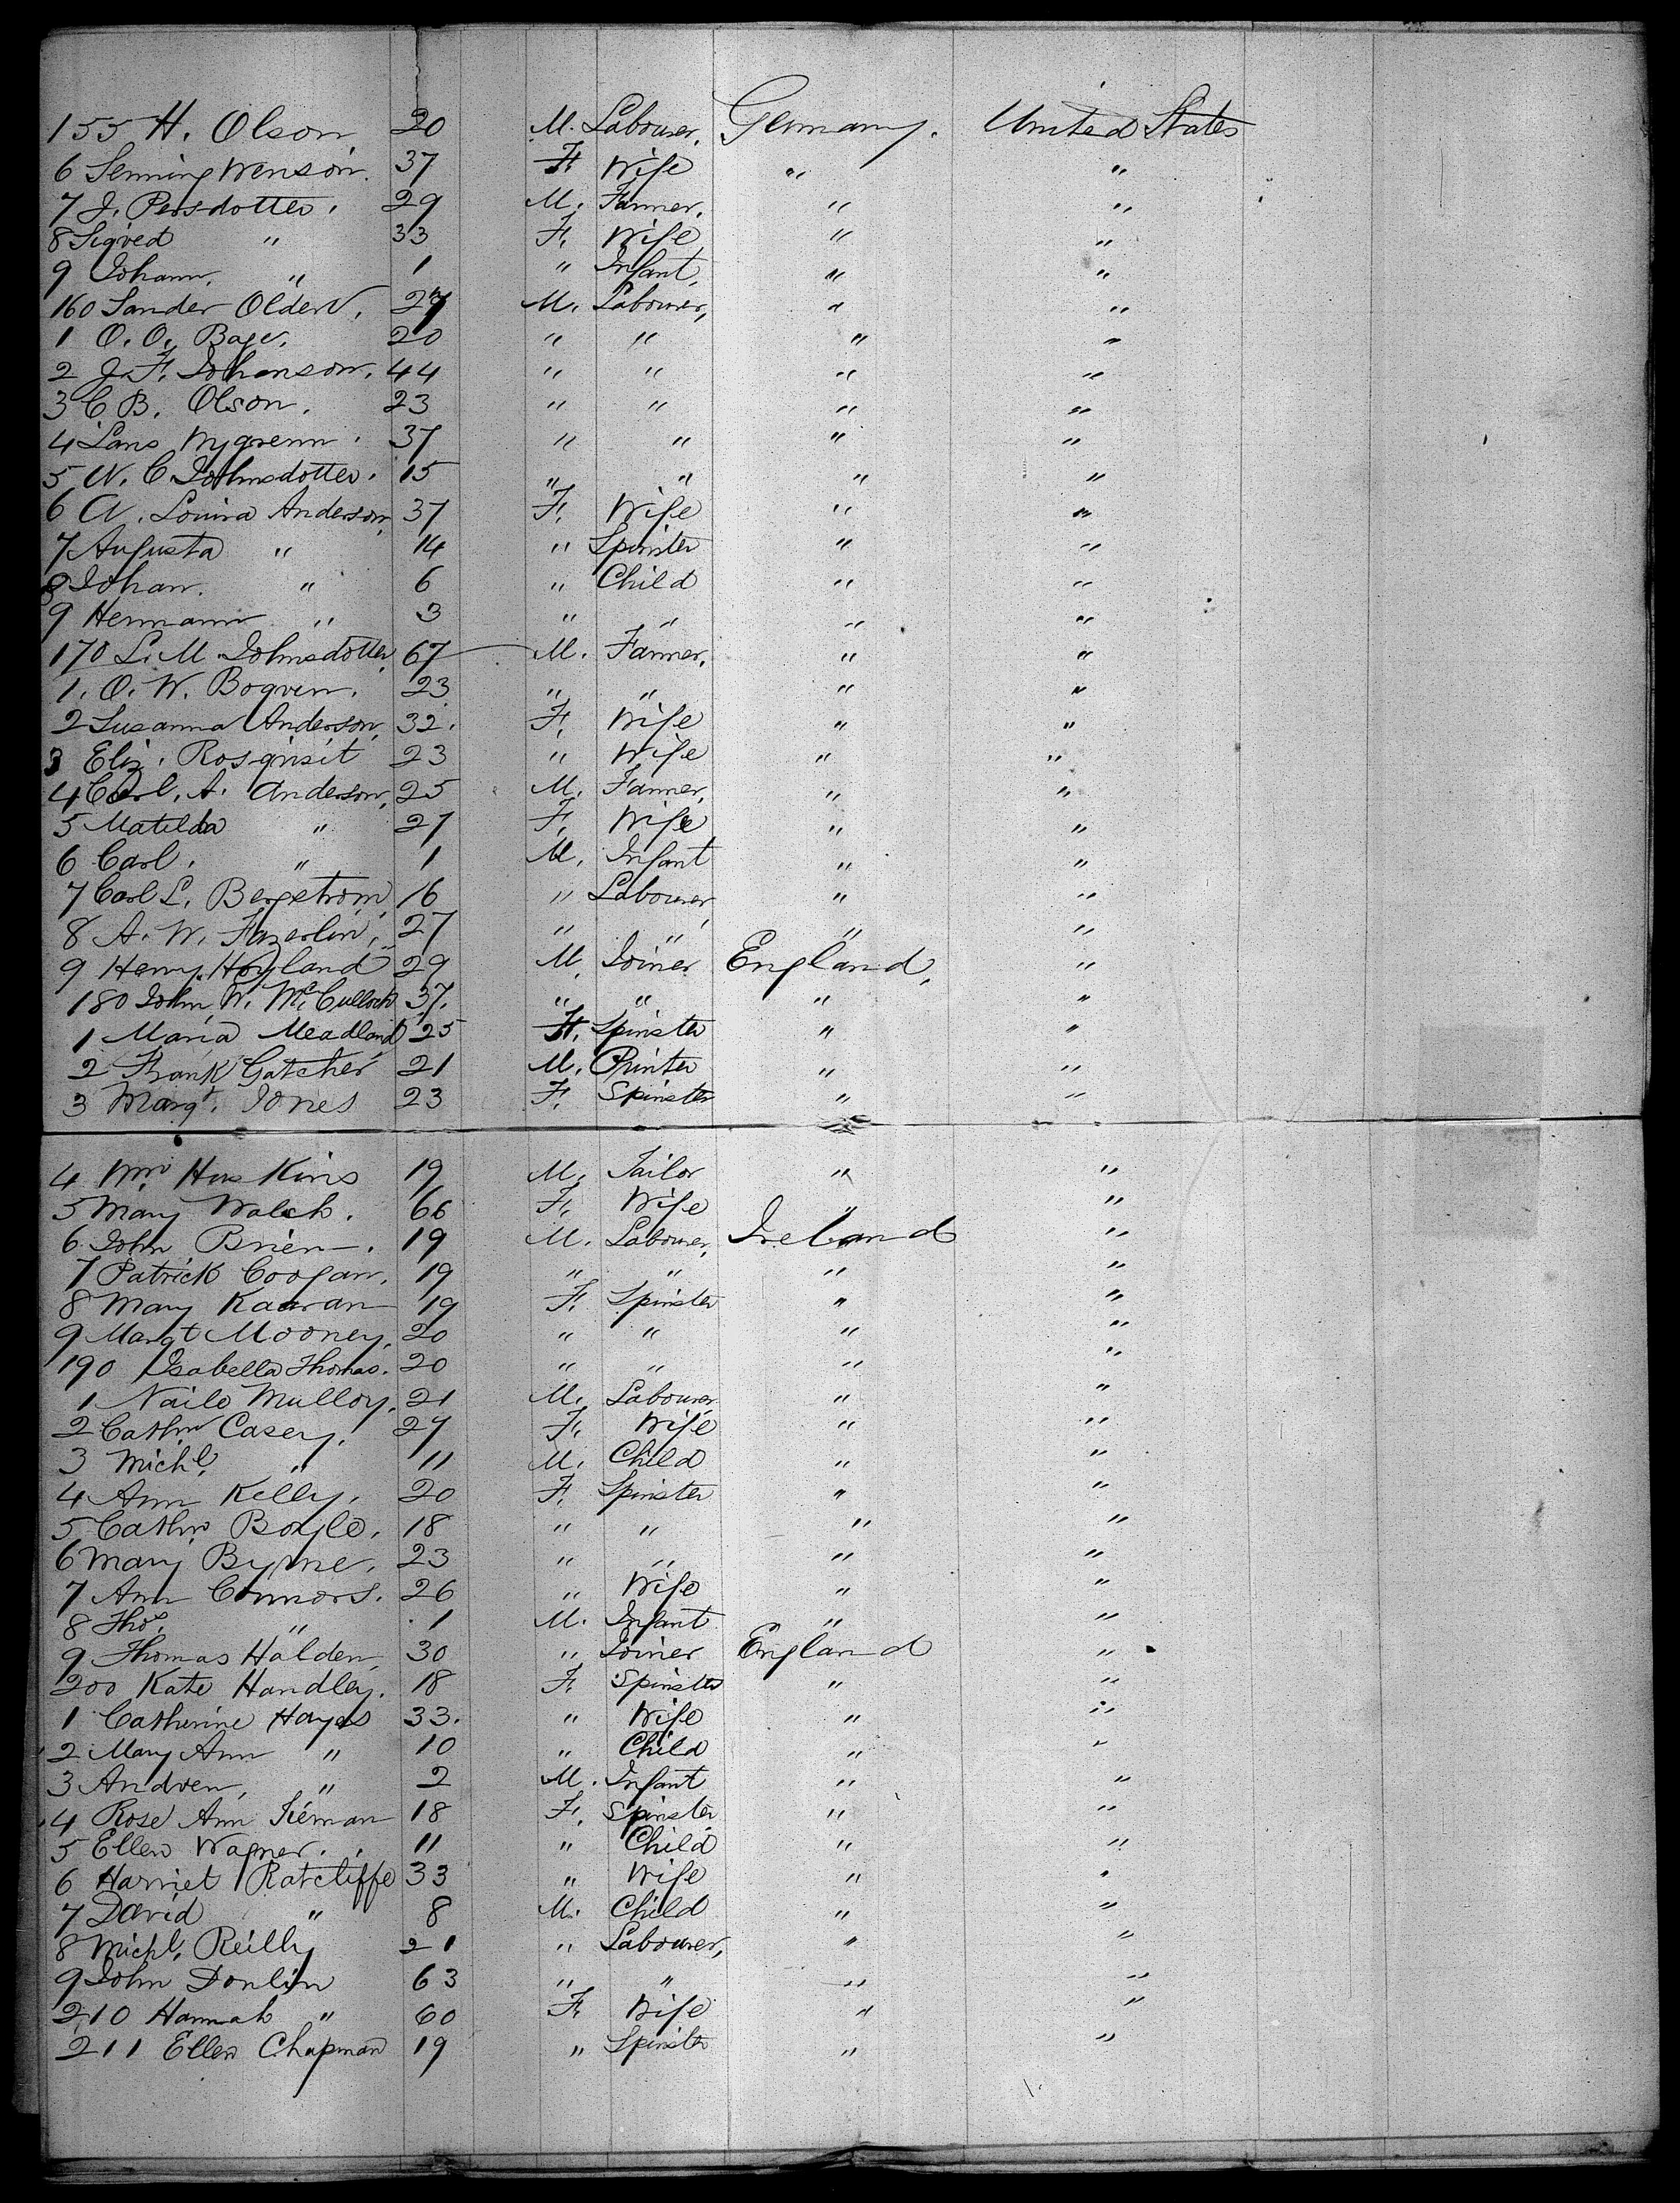 155 H. Olson 20 M. Labourer, Germany. United States
6 Senning Wenson. 37 F. Wife " "
7 J. Persdotter. 29 M. Farmer. " "
8 Sigved " 33 F. Wife " "
9 Johann. " 1 " Infant, " "
160 Sander Olden, 27 M. Labourer, " "
1 O. O. Bage. 20 " " " "
2 J. F. Johanson. 44 " " " "
3 C B. Olson. 23 " " " "
4 Lars Nygrenn. 37 " " " "
5 N. C. Johnsdotter. 15 " " " "
6 A. Louisa Anderson, 37 F. Wife " "
7 Augusta " 14 " Spinster " "
8 Johan. " 6 " Child " "
9 Hermann " 3 " " " "
170 L. M. Johnsdotter 67 M. Farmer. " "
1. O. W. Bogren. 23 " " " "
2 Susanna Anderson, 32. F. Wife " "
3 Eliz. Rosqvist 23 " Wife " "
4 Carl. A. Anderson, 25 M. Farmer, " "
5 Matilda " 27 F. Wife " "
6 Carl. " 1 M. Infant " "
7 Carl L. Bergstrom, 16 " Labourer, " "
8 A. W. Fazerlin, 27 " " " "
9 Henry Hoyland 29 M. Joiner England, "
180 John W. McCulloch 37. " " " "
1 Maria Meadland 25 F. Spinster " "
2 Frank Gatcher 21 M. Printer " "
3 Margt. Jones 23 F. Spinster " "
4 Wm Huskins 19 M. Tailor " "
5 Mary Walsh. 66 F. Wife " "
6 John Brien. 19 M. Labourer, Ireland "
7 Patrick Coogan. 19 " " " "
8 Mary Kaaran 19 F. Spinster " "
9 Margt Mooney. 20 " " " "
190 Isabella Thomas. 20 " " " "
1 Naile Mulloy. 21 M. Labourer " "
2 Cathn Casey. 27 F. Wife " "
3 Michl. " 11 M. Child " "
4 Ann Kelly. 20 F. Spinster " "
5 Cathn Boyle. 18 " " " "
6 Mary Byrne. 23 " " " "
7 Ann Connors. 26 " Wife " "
8 Thos. " 1 M. Infant " "
9 Thomas Halden 30 " Joiner England "
200 Kate Handley. 18 F. Spinster " "
1 Catherine Hayes 33. " Wife " "
2 Mary Ann " 10 " Child " "
3 Andrew, " 2 M. Infant " "
4 Rose Ann Tiernan 18 F. Spinster " "
5 Ellen Wagner. 11 " Child " "
6 Harriet Ratcliffe 33 " Wife " "
7 David " 8 M. Child " "
8 Michl. Reilly 21 " Labourer, " "
9 John Donlin 63 " " " "
210 Hannah " 60 F. Wife " "
211 Ellen Chapman 19 " Spinster " "